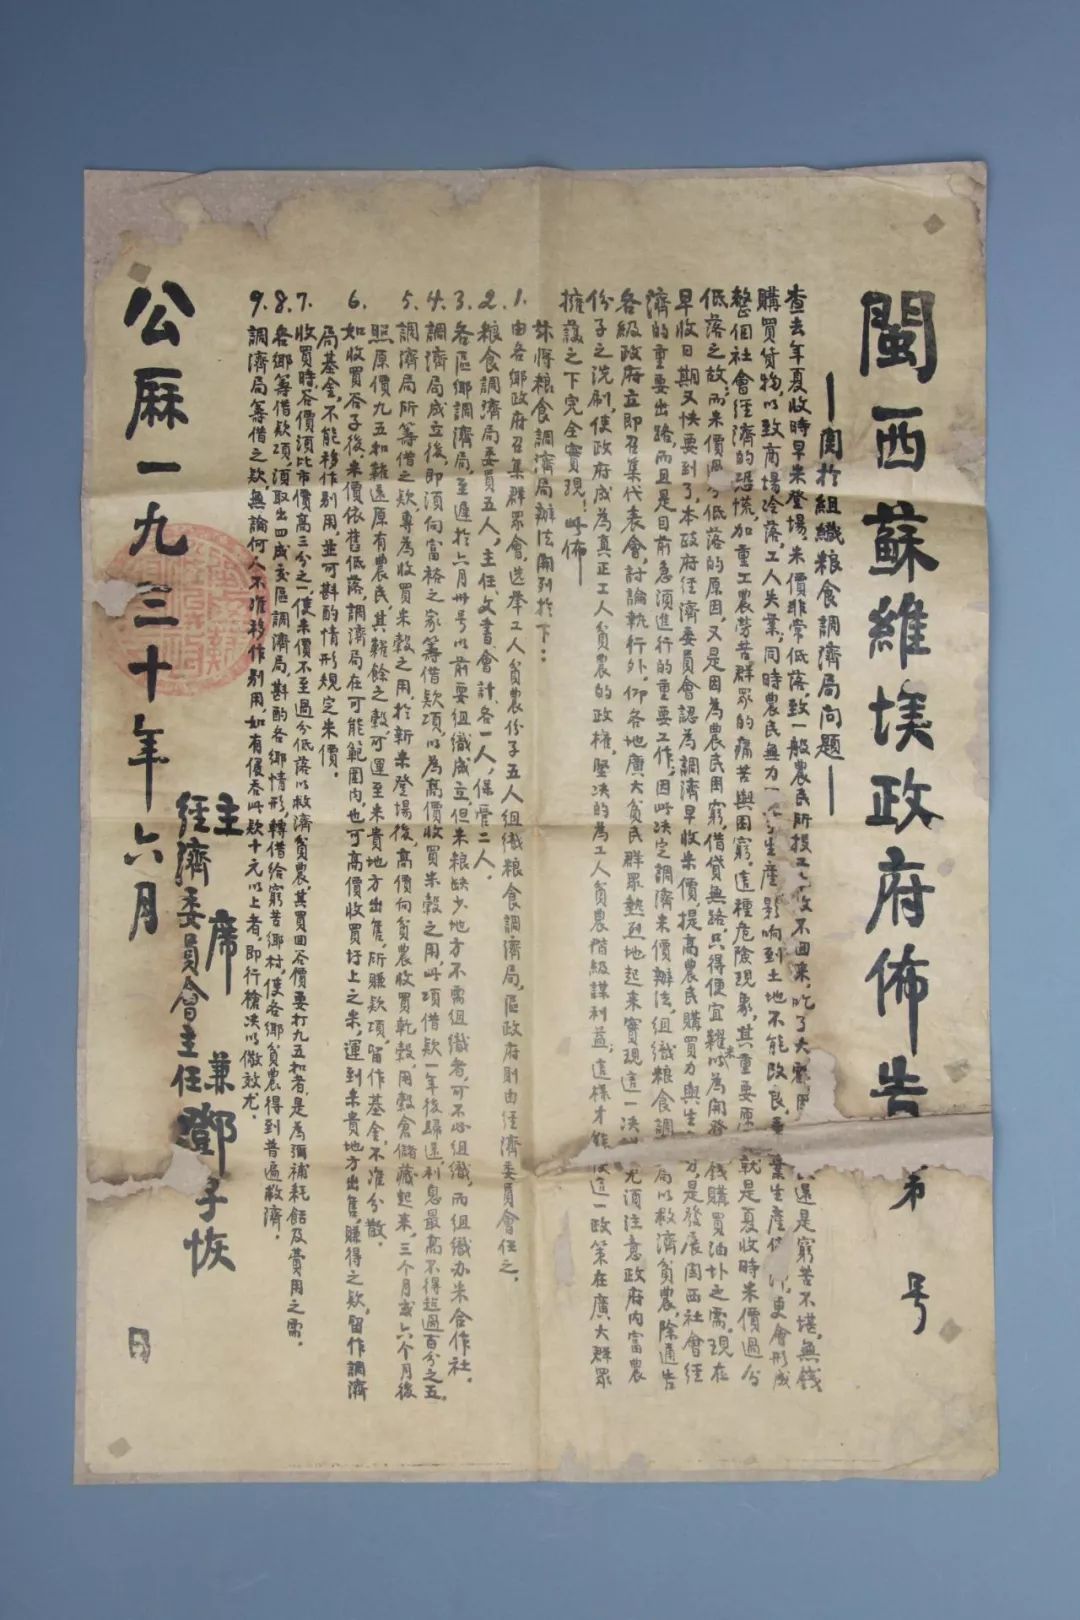 閩西蘇維埃政府佈告 第 号
——関於組織粮食調濟局问题——
查去年夏收時早米登場，米價非常低落，致一般農民所投工 收不回来，吃了大虧， 還是窮苦不堪，無錢
購買貨物，以致商場冷落，工人失業，同時農民無力 生產影响到土地不能改良， 業生產 更會形成
整個社會経濟的恐慌，加重工農勞苦群眾的痛苦與困窮。這種危險現象，其重要原 就是夏收時米價過分
低落之故，而米價 低落的原因，又是因為農民困窮，借貸無路，只得便宜糶米以為開發 錢購買油 之需。現在
早收日期又快要到了，本政府経濟委員會認為調濟早收米價，提高農民購買力與生 力，是發展閩西社會経
濟的重要出路，而且是目前急須進行的重要工作，因此决定調濟米價辦法，組織粮食調 局以救濟貧農，除通告
各級政府立即召集代表會，討論執行外，仰各地廣大貧民群眾熱烈地起来實現這一决 尤須注意政府内富農
份子之洗刷，使政府成為真正工人貧農的政權，堅决的為工人貧農階級謀利益，這樣才能使這一政策在廣大群眾
擁護之下完全實現！此佈——
兹將粮食調濟局辦法開列於下：
1. 由各鄉政府召集群眾會，选举工人貧農份子五人組織粮食調濟局，區政府則由経濟委員會任之。
2. 粮食調濟局委員五人，主任、文書、會計、各一人，保管二人。
3. 各區鄉調濟局，至遲於六月卅号以前要組織成立，但米粮缺少地方不需組織者，可不必組織，而組織办米合作社。
4. 調濟局成立後，即須向富裕之家籌借欵項，以為高價收買米穀之用，此項借欵一年後歸還利息最高不得超過百分之五。
5. 調濟局所籌借之欵，專為收買米穀之用，於新米登場後，高價向貧農收買乾穀，用穀倉儲藏起来，三个月或六个月後
照原價九五扣糶还原有農民，其糶餘之穀，可運至米貴地方出售，所賺欵項，留作基金，不准分散。
6. 如收買谷子後，米價依舊低落，調濟局在可能範圍内，也可高價收買圩上之米，運到米貴地方出售，賺得之欵，留作調濟
局基金，不能移作别用，並可斟酌情形規定米價。
7. 收買時，谷價須比市價高三分之一，使米價不至過分低落以救濟貧農，其買回谷價要打九五扣者，是為彌補耗餂及費用之需。
8. 各鄉籌借欵項，須取出四成交區調濟局，斟酌各鄉情形，轉借給窮苦鄉村，使各鄉貧農得到普遍救濟。
9. 調濟局籌借之欵，無論何人不准移作别用，如有侵吞此欵十元以上者，即行槍决以儆效尤。
主席兼
経濟委員會主任 鄧子恢
公厤一九三十年六月 日